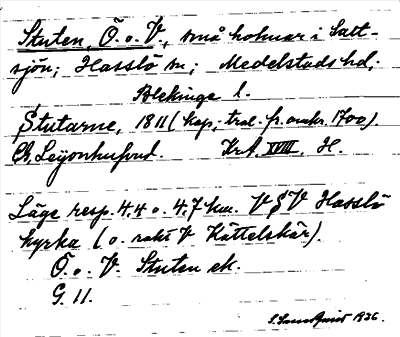 Stuten, Ö. o. V., små holmar i Salt-
sjön; Hasslö sn; Medelstads hd;
Blekinge l.
Stutarne, 1811 (kop; trol. fr. omkr. 1700).
Ch. Leijonhufvud. KrA XVIII. H.
Läge resp. 4,4 o. 4,7 km. V§V Hasslö
kyrka (o. rakt V Kättelskär).
Ö. o. V. Stuten ek.
G. 11.
1936.